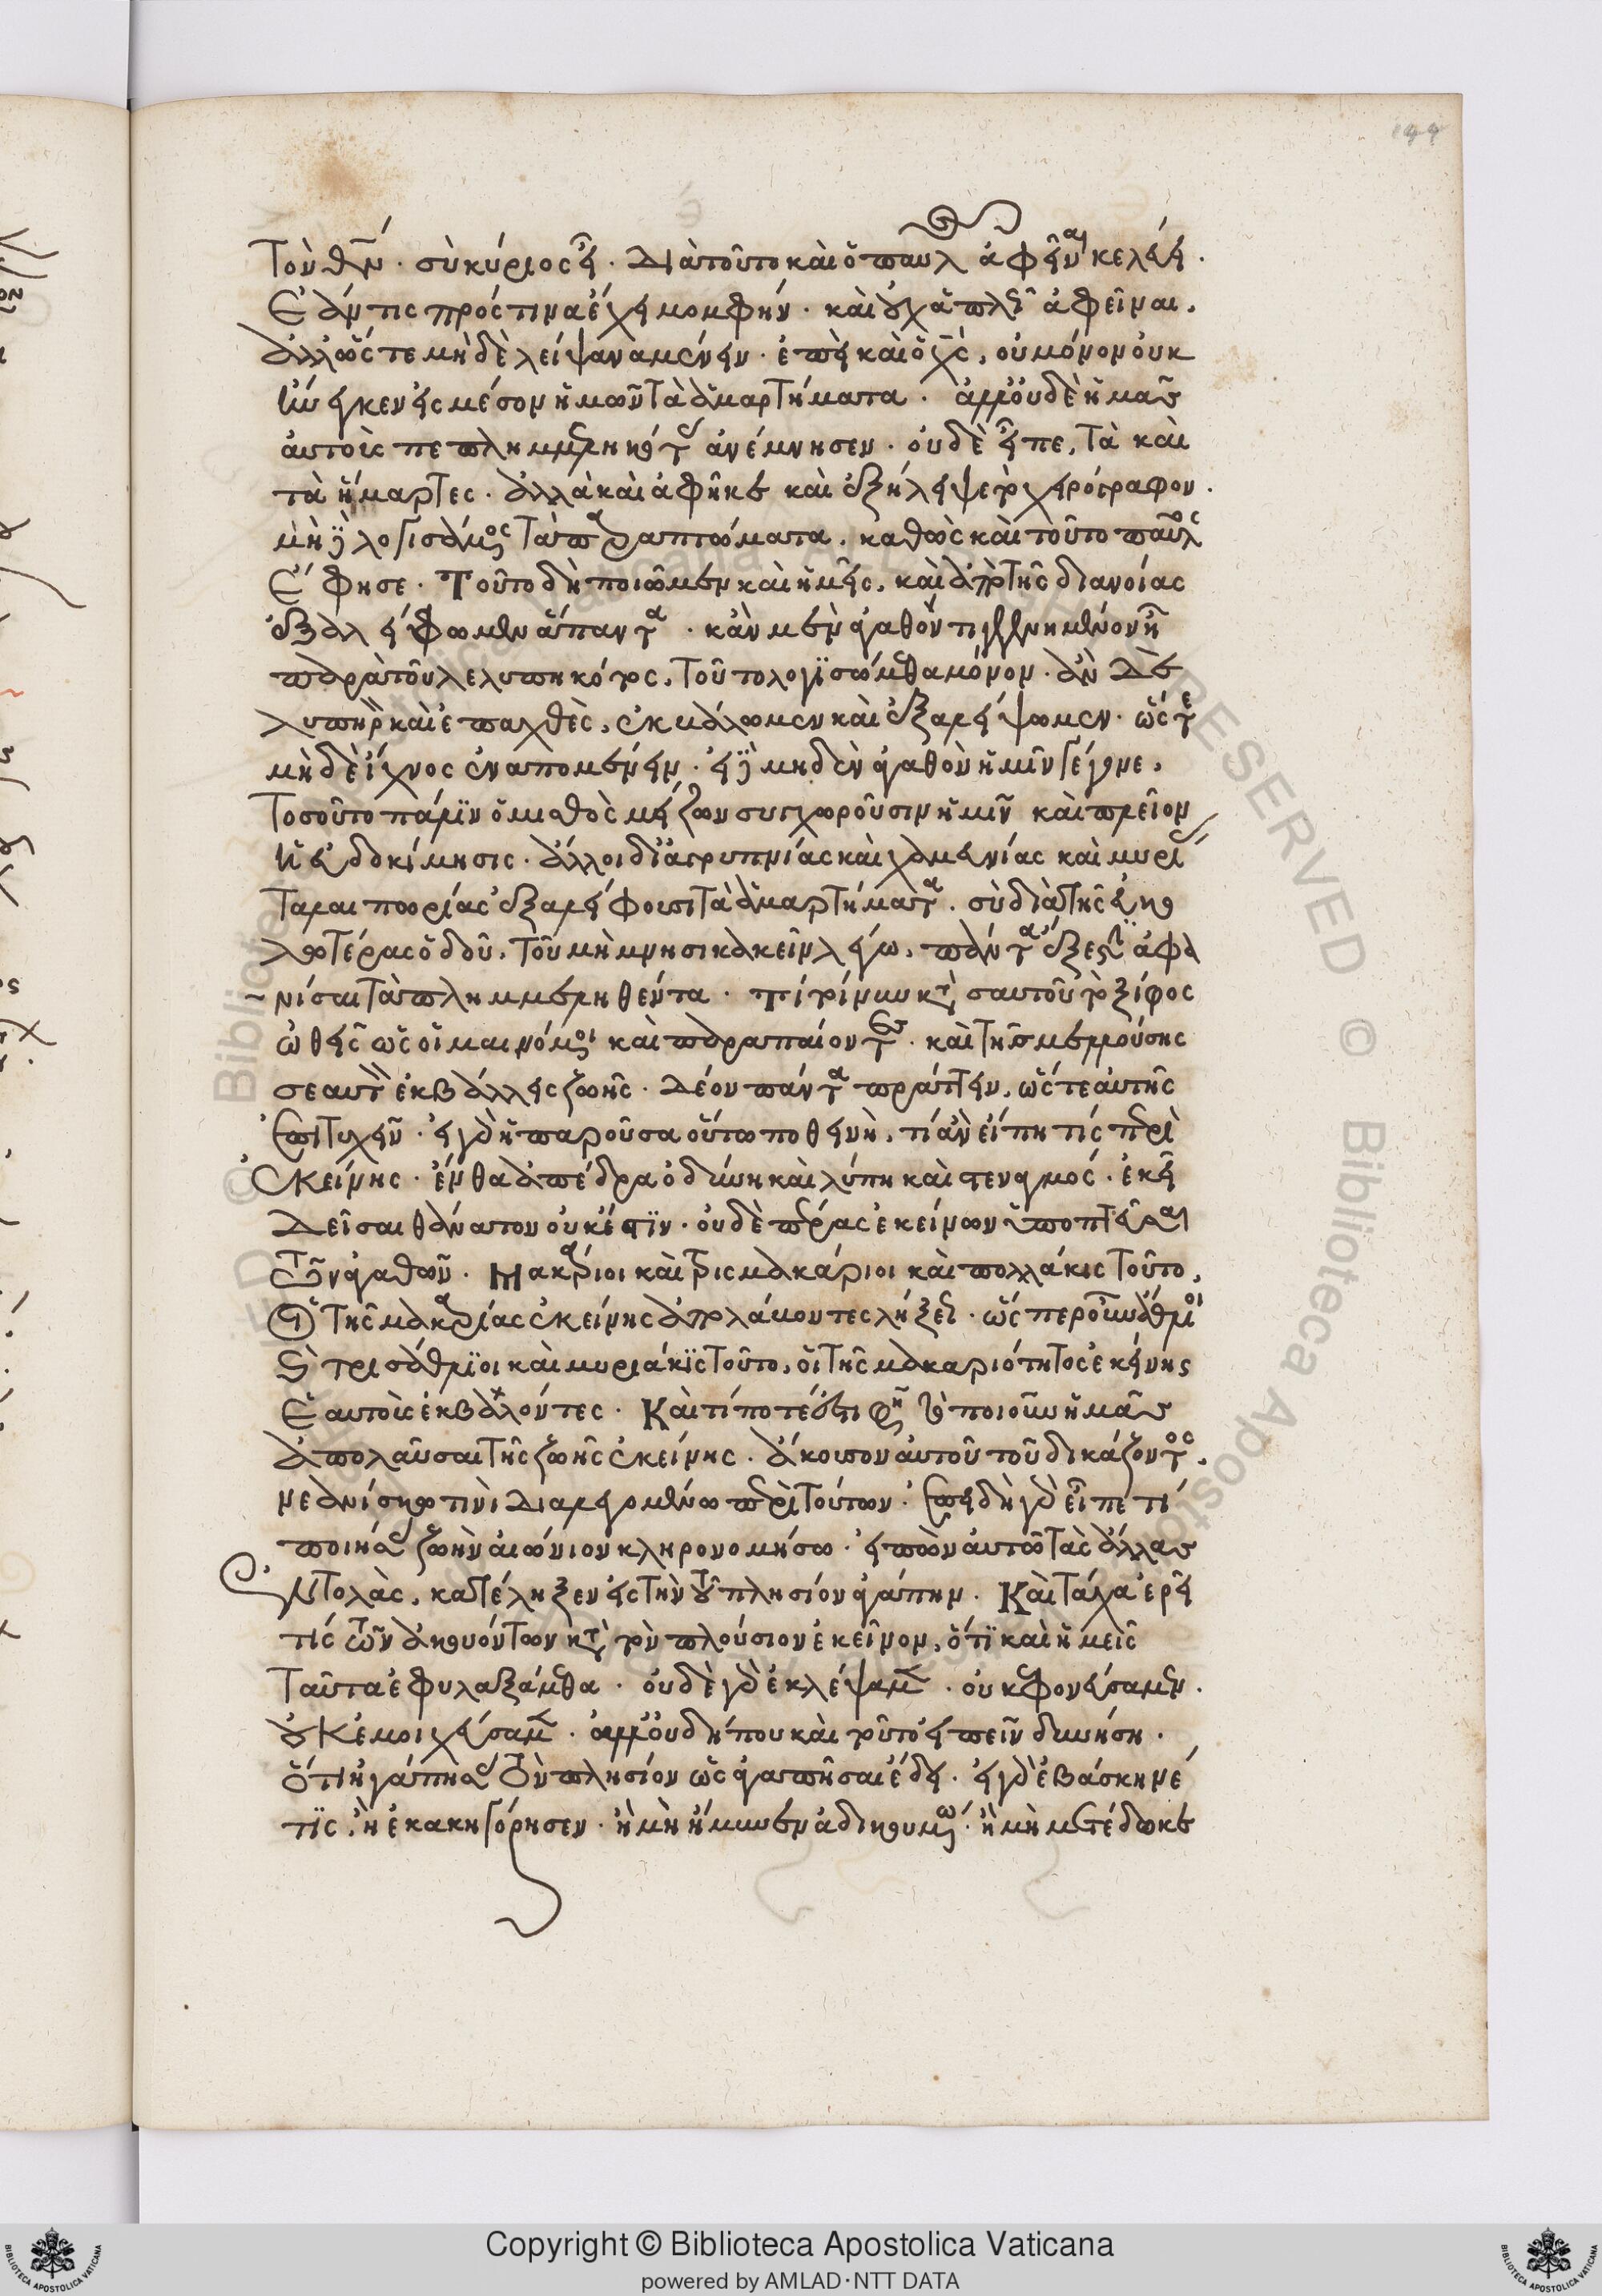 τὸν θυμόν. σὺ κύριος εἶ. Διὰ τοῦτο καὶ ὁ παῦλος ἀφεῖναι κελεύει.
Ἐάν τις πρός τινα ἔχει μομφήν. καὶ οὐχ ἁπλῶς ἀφεῖναι,
ἀλλ' ὥστε μηδὲ λείψανα μένειν. ἐπεὶ καὶ ὁ χς, οὐ μόνον οὐκ
ἤνεγκεν εἰς μέσον ἡμῶν τὰ ἁμαρτήματα. ἀλλ' οὐδὲ ἡμᾶς
αὐτοὺς πεπλημμεληκότας ἀνέμνησεν. οὐδὲ εἶπε, τὰ καὶ
τὰ ἥμαρτες. ἀλλὰ καὶ ἀφῆκε καὶ ἐξήλειψε τὸ χειρόγραφον.
μὴ λογισάμενος τὰ παραπτώματα. καθὼς καὶ τοῦτο παῦλος
Ἔφησε. Τοῦτο δὴ ποιῶμεν καὶ ἡμεῖς, καὶ ἀπὸ τῆς διανοίας
ἐξαλείφωμεν ἅπαντα. κἂν μὲν ἀγαθόν τι γεγενημένον ᾖ
παρὰ τοῦ λελυπηκότος, τοῦτο λογισώμεθα μόνον. ἂν δὲ
λυπηρὸν καὶ ἐπαχθὲς, ἐκβάλωμεν καὶ ἐξαλείψωμεν. ὥστε
μηδὲ ἴχνος ἐναπομένειν. εἰ μηδὲν ἀγαθὸν ἡμῖν γέγονε,
τοσοῦτο πάλιν ὁ μισθὸς μείζων συγχωροῦσιν ἡμῖν καὶ πλεῖον
ἡ εὐδοκίμησις. ἄλλοι δι' ἀγρυπνίας καὶ χαμευνίας καὶ μυρίας
ταλαιπωρίας ἐξαλείφουσι τὰ ἁμαρτήματα. σὺ διὰ τῆς εὐκο
λωτέρας ὁδοῦ, τοῦ μὴ μνησικακεῖν λέγω, πάντα ἔξεστιν ἀφα
νίσαι τὰ πλημμεληθέντα. τί τοίνυν κατὰ σαυτοῦ τὸ ξίφος
ὠθεῖς ὡς οἱ μαινόμενοι καὶ παραπαίοντες. καὶ τῆς μελλούσης
σεαυτὸν ἐκβάλλεις ζωῆς. Δέον πάντα πράττειν, ὥστε αὐτῆς
ἐπιτυχεῖν. εἰ γὰρ ἡ παροῦσα οὕτω ποθεινὴ, τί ἂν εἴπῃ τίς περὶ
ἐκείνης. ἔνθα ἀπέδρα ὀδύνη καὶ λύπη καὶ στεναγμός. ἐκεῖ
δεῖσαι θάνατον οὐκ ἔστιν. οὐδὲ πέρας ἐκείνων ὑποπτεῦσαι
τῶν ἀγαθῶν. Μακάριοι καὶ τρὶς μακάριοι καὶ πολλάκις τοῦτο,
οἱ τῆς μακαρίας ἐκείνης ἀπολαύοντες λήξεως. ὥσπερ οὖν ἄθλιοι
καὶ τρισάθλιοι καὶ μυριάκις τοῦτο, οἱ τῆς μακαριότητος ἐκείνης
Ἑαυτοὺς ἐκβάλοντες. Καὶ τί ποτέ ἐστι φησὶ τὸ ποιοῦν ἡμᾶς
ἀπολαῦσαι τῆς ζωῆς ἐκείνης. ἄκουσον αὐτοῦ τοῦ δικάζοντος,
νεανίσκῳ τινὶ διαλεγομένῳ περὶ τούτων. ἐπειδὴ γὰρ εἶπε τί
ποιήσας ζωὴν αἰώνιον κληρονομήσω. εἰπὼν αὐτῷ τὰς ἄλλας
Ἐντολὰς, κατέληξεν εἰς τὴν τοῦ πλησίον ἀγάπην. Καὶ τάχα ἐρεῖ
τίς τῶν ἀκουόντων κατὰ τὸν πλούσιον ἐκεῖνον, ὅτι καὶ ἡμεῖς
ταῦτα ἐφυλαξάμεθα. οὐδὲ γὰρ ἐκλέψαμεν. οὐκ ἐφονεύσαμεν.
οὐκ ἐμοιχεύσαμεν. ἀλλ' οὐ δήπου καὶ τοῦτο εἰπεῖν δυνήσῃ.
ὅτι ἠγάπησας τὸν πλησίον ὡς ἀγαπῆσαι ἔδει. εἰ γὰρ ἐβάσκηνέ
τις, ἢ ἐκακηγόρησεν. ἢ μὴ ἤμυνεν ἀδικουμένῳ. ἢ μὴ μετέδωκε